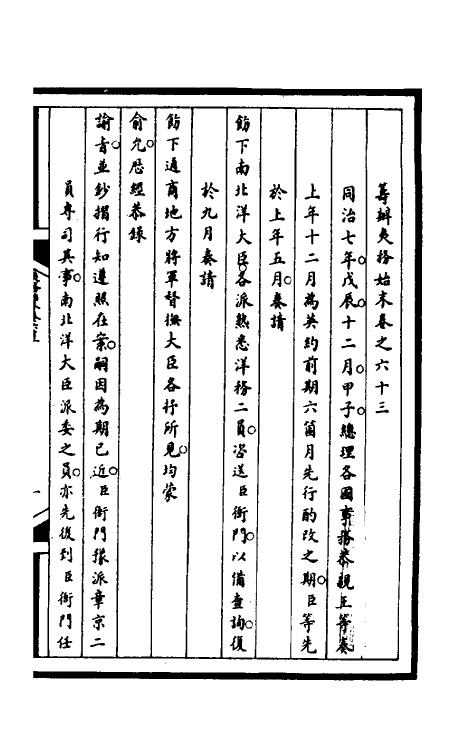 籌辦夷務始末卷之六十三
同治七年戊辰十二月甲子總理各國事務恭親王等奏
上年十二月為英約前期六箇月先行酌改之期臣等先
於上年五月奏請
飭下南北洋大臣各派熟悉洋務二員咨送臣衙門以備查詢復
於九月奏請
飭下通商地方將軍督撫大臣各抒所見均蒙
俞允歷經恭錄
諭旨並鈔摺行知遵照在案嗣因為期已近臣衙門擬派章京二
員專司其事南北洋大臣派委之員亦先後到臣衙門任
一